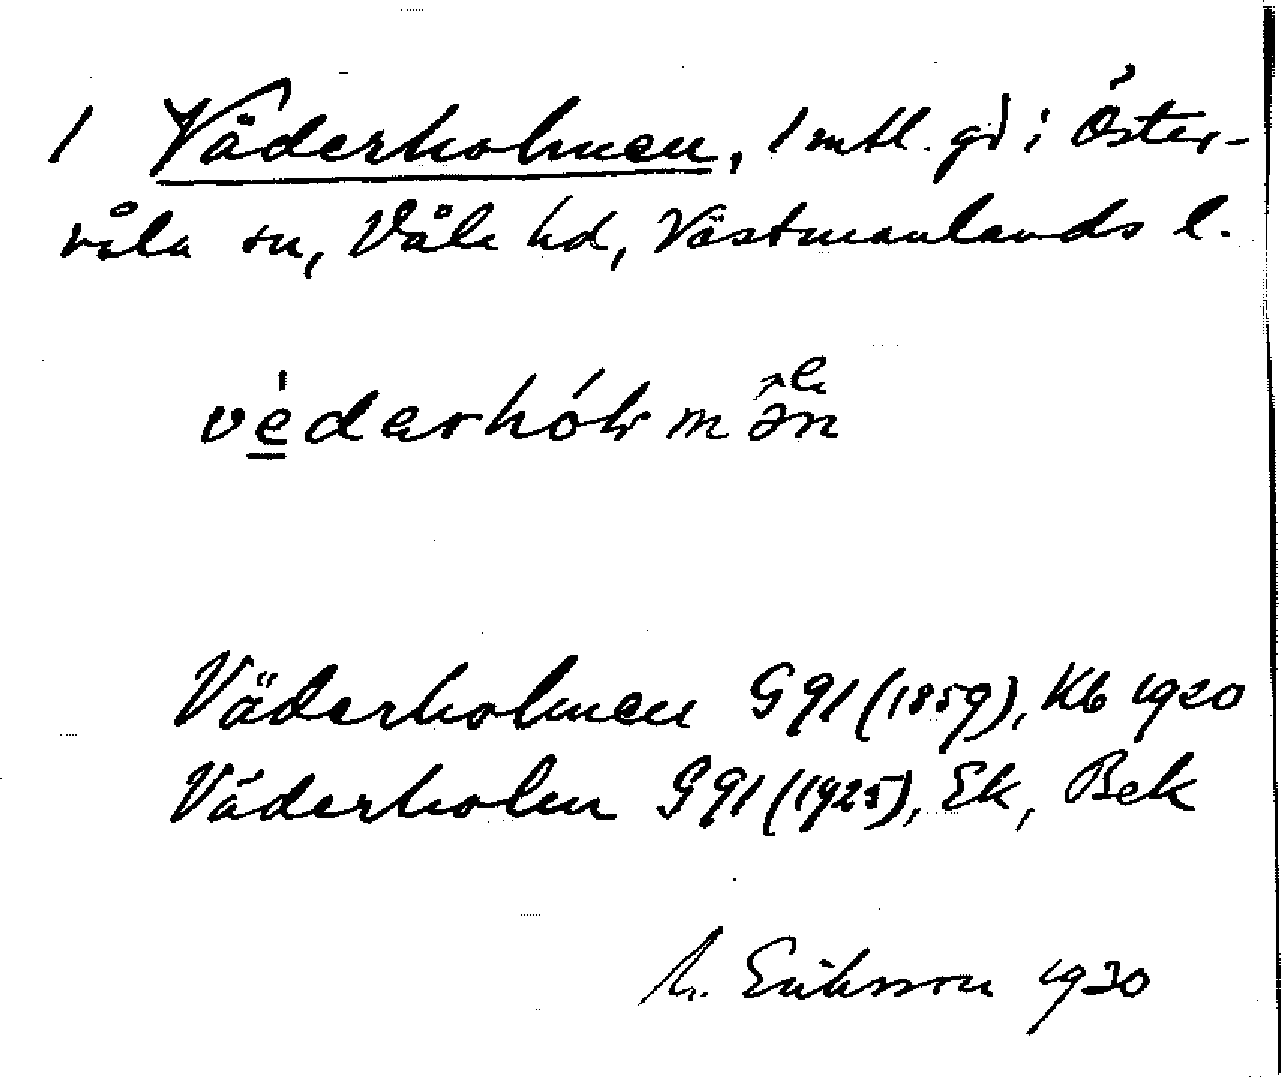 1 Väderholmen, 1 mtl. gd i Öster-
våla sn, Våla hd, Västmanlands l.
Väderholmen G 91 (1859), Kb 1920
Väderholm G 91 (1925), Ek, Bek
M. Eriksson 1930